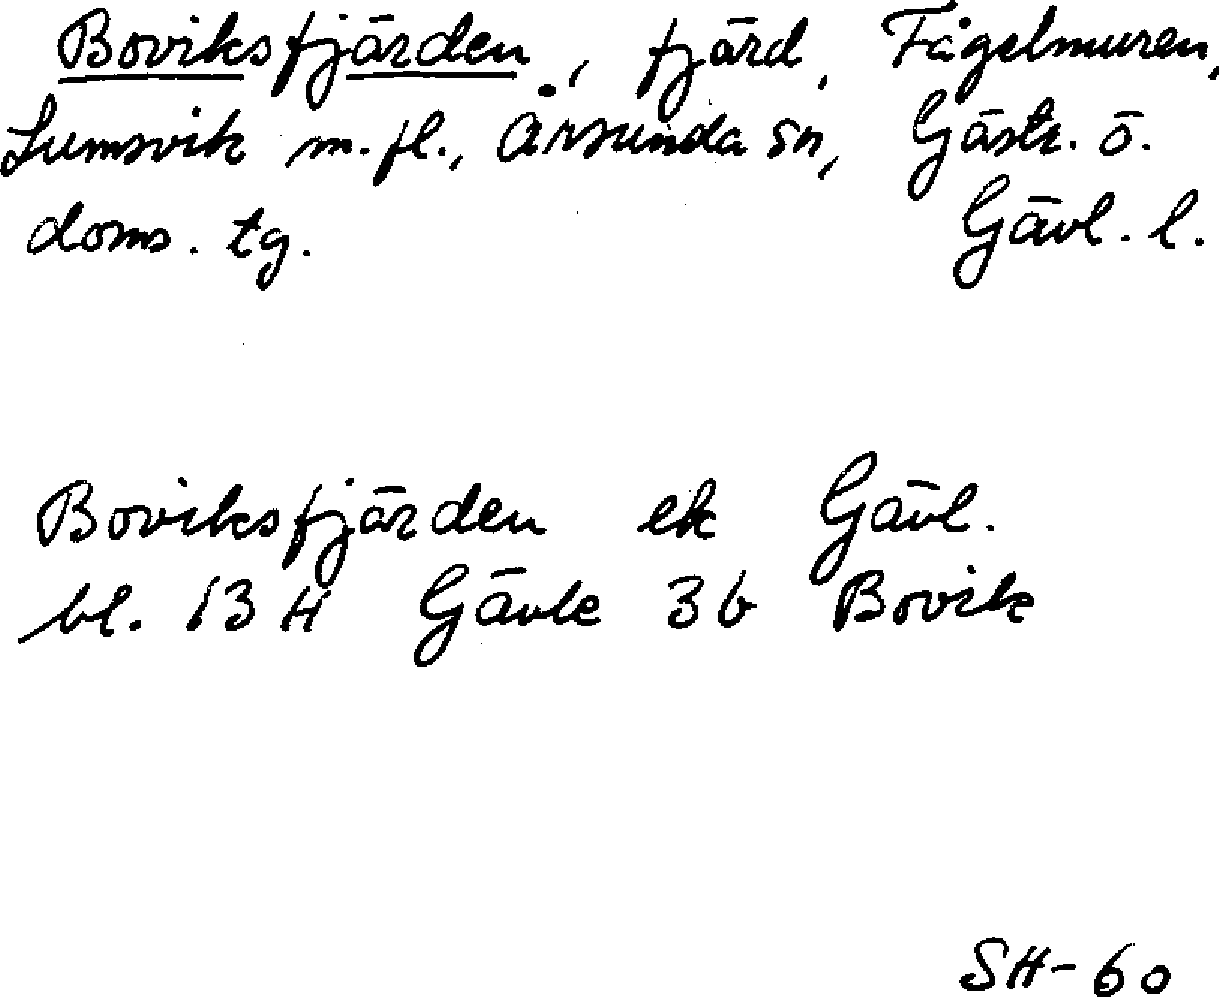 Boviksfjärden, fjärd, Fågelmuren,
Lumsvik m.fl., Årsunda sn, Gästr. ö.
doms. tg. Gävl. l.
Boviksfjärden ek Gävl.
bl. 13 H Gävle 3b Bovik
SH-60